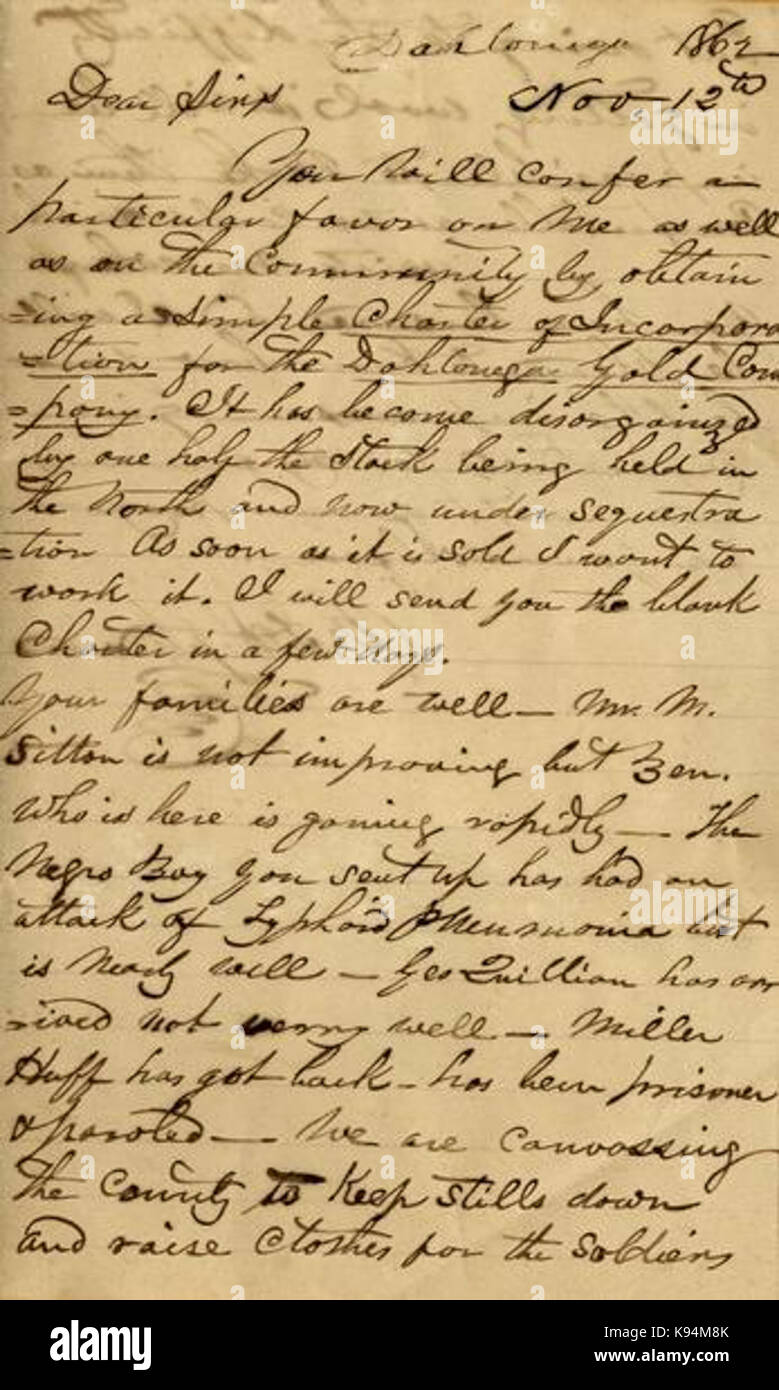 Dahlonega 1862
Dear Sirs Nov. 12th
You will confer a
particular favor on me as well
as on the Community by obtain
=ing a simple Charter of Incorpora
=tion for the Dahlonega Gold Com
=pany. It has become disorganized
by one half the Stock being held in
the North and now under sequestra
=tion As soon as it is sold I want to
work it. I will send you the blank
Charter in a few days.
Your families are well — Mr. M.
Sitton is not improving but Ben.
who is here is gaining rapidly — The
Negro Boy you sent up has had an
attack of Typhoid Pneumonia but
is nearly well — Geo Quillian has arr
=ived not verry well — Miller
Huff has got back - has been prisoner
& paroled — We are canvassing
the County to Keep stills down
and raise Clothes for the Soldiers
alamy
Image ID: K94M8K
www.alamy.com